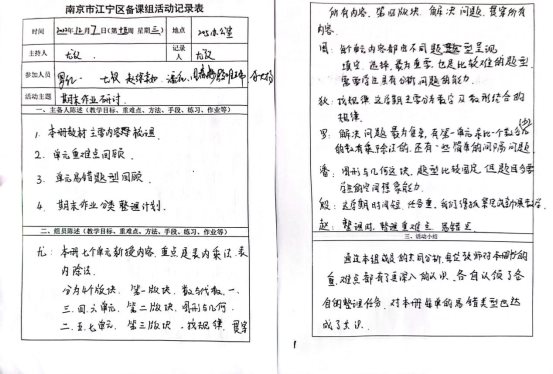 南京市江宁区备课组活动记录表
时间 2022年12月7日(第 周 星期三) 地点 205办公室
主持人 尤敏 记录人 尤敏
参加人员
活动主题 期末作业研讨.
一、主备人陈述(教学目标、重难点、方法、手段、练习、作业等)
1. 本册教材主要内容梳理.
2. 单元重难点回顾.
3. 单元易错题型回顾.
4. 期末作业分类整理计划.
二、组员陈述(教学目标、重难点、方法、手段、练习、作业等)
尤: 本册七个单元新授内容, 重点是表内乘法、表
内除法.
分为4个版块. 第一版块, 数与代数, 一、
三、四、六单元. 第二版块, 图形与几何.
二、五、七单元. 第三版块, 找规律, 贯穿
所有内容. 第四版块, 解决问题, 贯穿所有
内容.
周: 每个单元内容都由不同题型呈现
填空、选择, 最为重要, 也是比较难的题型
需要学生具有分析问题的能力.
狄: 找规律 这学期主要分布数学及数形结合的
规律.
罗: 解决问题最为复杂, 有第一单元求比一个数多(少)
的数有乘除法的, 还有一些简单的间隔问题.
潘: 图形与几何这块, 题型比较固定, 但题目需要
一定的空间想象能力.
殷: 这学期时间短, 任务重, 我们得抓紧
赵: 整理时, 整理重难点、易错点.
三、活动小结
通过本组成员的共同分析, 每位教师对本册的
重、难点都有了更深入的认识, 各自认领了各
自的整理任务, 对本册每单的易错类型也达
成了共识.
1